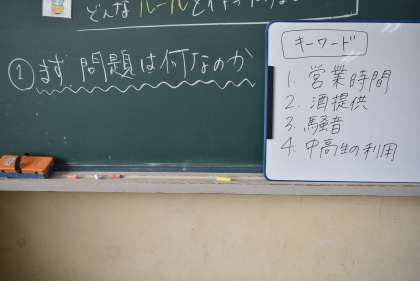 どんなルールを作っ
① まず 問題は何なのか
キーワード
1. 営業時間
2. 酒提供
3. 騒音
4. 中高生の利用